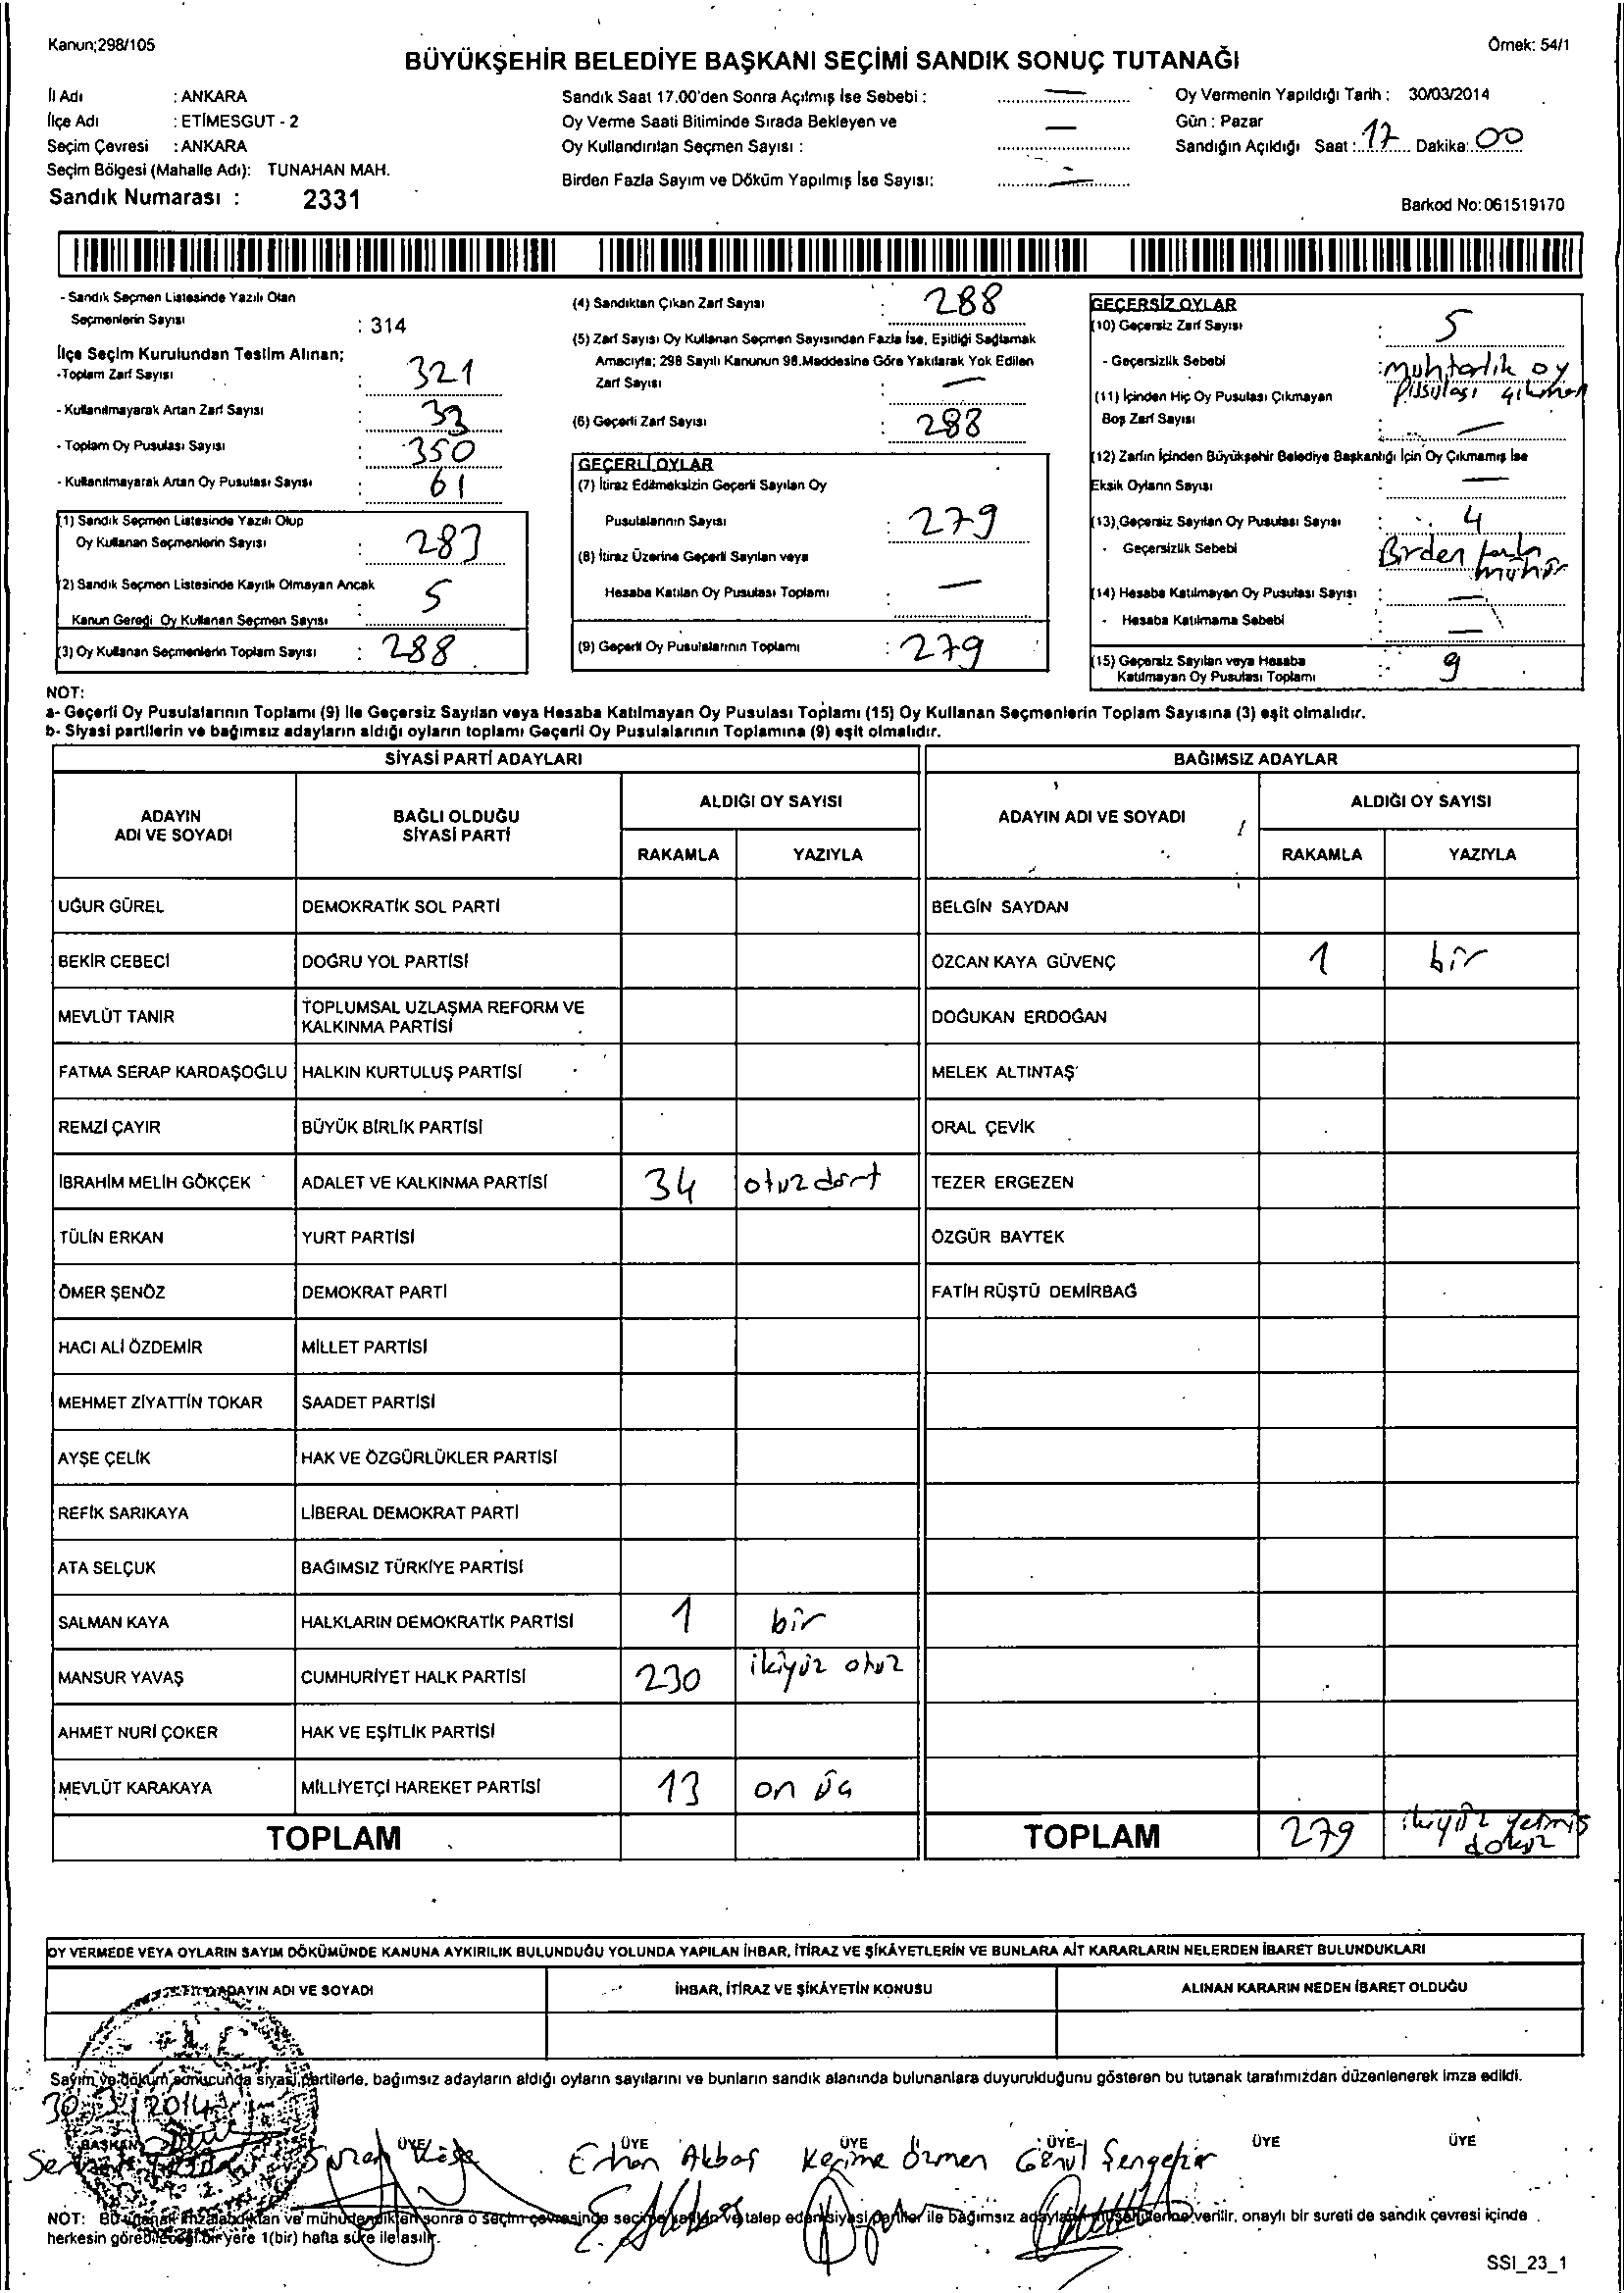 Kanun;298/105
Örnek: 54/1
BÜYÜKŞEHİR BELEDİYE BAŞKANI SEÇİMİ SANDIK SONUÇ TUTANAĞI
İl Adı : ANKARA
İlçe Adı : ETİMESGUT - 2
Seçim Çevresi : ANKARA
Seçim Bölgesi (Mahalle Adı): TUNAHAN MAH.
Sandık Numarası : 2331
Sandık Saat 17.00'den Sonra Açılmış İse Sebebi : —
Oy Verme Saati Bitiminde Sırada Bekleyen ve
Oy Kullandırılan Seçmen Sayısı : —
Birden Fazla Sayım ve Döküm Yapılmış İse Sayısı: —
Oy Vermenin Yapıldığı Tarih : 30/03/2014
Gün : Pazar
Sandığın Açıldığı Saat : 17 Dakika: 00
Barkod No: 061519170
- Sandık Seçmen Listesinde Yazılı Olan
Seçmenlerin Sayısı : 314
İlçe Seçim Kurulundan Teslim Alınan;
-Toplam Zarf Sayısı : 321
- Kullanılmayarak Artan Zarf Sayısı : 33
- Toplam Oy Pusulası Sayısı : 350
- Kullanılmayarak Artan Oy Pusulası Sayısı : 61
(1) Sandık Seçmen Listesinde Yazılı Olup
Oy Kullanan Seçmenlerin Sayısı : 283
(2) Sandık Seçmen Listesinde Kayıtlı Olmayan Ancak
Kanun Gereği Oy Kullanan Seçmen Sayısı : 5
(3) Oy Kullanan Seçmenlerin Toplam Sayısı : 288
(4) Sandıktan Çıkan Zarf Sayısı : 288
(5) Zarf Sayısı Oy Kullanan Seçmen Sayısından Fazla İse, Eşitliği Sağlamak
Amacıyla; 298 Sayılı Kanunun 98.Maddesine Göre Yakılarak Yok Edilen
Zarf Sayısı : —
(6) Geçerli Zarf Sayısı : 288
GEÇERLİ OYLAR
(7) İtiraz Edilmeksizin Geçerli Sayılan Oy
Pusulalarının Sayısı : 279
(8) İtiraz Üzerine Geçerli Sayılan veya
Hesaba Katılan Oy Pusulası Toplamı : —
(9) Geçerli Oy Pusulalarının Toplamı : 279
GEÇERSİZ OYLAR
(10) Geçersiz Zarf Sayısı : 5
- Geçersizlik Sebebi : Muhtarlık oy
Pusulası çıkması
(11) İçinden Hiç Oy Pusulası Çıkmayan
Boş Zarf Sayısı : —
(12) Zarfın İçinden Büyükşehir Belediye Başkanlığı İçin Oy Çıkmamış İse
Eksik Oyların Sayısı : —
(13) Geçersiz Sayılan Oy Pusulası Sayısı : 4
- Geçersizlik Sebebi : Birden fazla
mühür
(14) Hesaba Katılmayan Oy Pusulası Sayısı : —
- Hesaba Katılmama Sebebi : —
(15) Geçersiz Sayılan veya Hesaba
Katılmayan Oy Pusulası Toplamı : 9
NOT:
a- Geçerli Oy Pusulalarının Toplamı (9) İle Geçersiz Sayılan veya Hesaba Katılmayan Oy Pusulası Toplamı (15) Oy Kullanan Seçmenlerin Toplam Sayısına (3) eşit olmalıdır.
b- Siyasi partilerin ve bağımsız adayların aldığı oyların toplamı Geçerli Oy Pusulalarının Toplamına (9) eşit olmalıdır.
SİYASİ PARTİ ADAYLARI
ADAYIN ADI VE SOYADI
BAĞLI OLDUĞU SİYASİ PARTİ
ALDIĞI OY SAYISI
RAKAMLA YAZIYLA
UĞUR GÜREL DEMOKRATİK SOL PARTİ
BEKİR CEBECİ DOĞRU YOL PARTİSİ
MEVLÜT TANIR TOPLUMSAL UZLAŞMA REFORM VE
KALKINMA PARTİSİ
FATMA SERAP KARDAŞOĞLU HALKIN KURTULUŞ PARTİSİ
REMZİ ÇAYIR BÜYÜK BİRLİK PARTİSİ
İBRAHİM MELİH GÖKÇEK ADALET VE KALKINMA PARTİSİ 34 otuzdört
TÜLİN ERKAN YURT PARTİSİ
ÖMER ŞENÖZ DEMOKRAT PARTİ
HACI ALİ ÖZDEMİR MİLLET PARTİSİ
MEHMET ZİYATTİN TOKAR SAADET PARTİSİ
AYŞE ÇELİK HAK VE ÖZGÜRLÜKLER PARTİSİ
REFİK SARIKAYA LİBERAL DEMOKRAT PARTİ
ATA SELÇUK BAĞIMSIZ TÜRKİYE PARTİSİ
SALMAN KAYA HALKLARIN DEMOKRATİK PARTİSİ 1 bir
MANSUR YAVAŞ CUMHURİYET HALK PARTİSİ 230 ikiyüz otuz
AHMET NURİ ÇOKER HAK VE EŞİTLİK PARTİSİ
MEVLÜT KARAKAYA MİLLİYETÇİ HAREKET PARTİSİ 13 on üç
TOPLAM
BAĞIMSIZ ADAYLAR
ADAYIN ADI VE SOYADI
ALDIĞI OY SAYISI
RAKAMLA YAZIYLA
BELGİN SAYDAN
ÖZCAN KAYA GÜVENÇ 1 bir
DOĞUKAN ERDOĞAN
MELEK ALTINTAŞ
ORAL ÇEVİK
TEZER ERGEZEN
ÖZGÜR BAYTEK
FATİH RÜŞTÜ DEMİRBAĞ
TOPLAM 279 ikiyüz yetmiş
dokuz
OY VERMEDE VEYA OYLARIN SAYIM DÖKÜMÜNDE KANUNA AYKIRILIK BULUNDUĞU YOLUNDA YAPILAN İHBAR, İTİRAZ VE ŞİKÂYETLERİN VE BUNLARA AİT KARARLARIN NELERDEN İBARET BULUNDUKLARI
ADAYIN ADI VE SOYADI
İHBAR, İTİRAZ VE ŞİKÂYETİN KONUSU
ALINAN KARARIN NEDEN İBARET OLDUĞU
Sayım ve döküm sonucunda siyasi partilerle, bağımsız adayların aldığı oyların sayılarını ve bunların sandık alanında bulunanlara duyurulduğunu gösteren bu tutanak tarafımızdan düzenlenerek imza edildi.
30/3/2014
BAŞKAN ÜYE ÜYE ÜYE ÜYE ÜYE ÜYE
Erhan Akbaş Kerime Özmen Gönül Şengezer
NOT: Bu tutanak imzalandıktan ve mühürlendikten sonra o seçim çevresinde seçime katılan ve talep eden siyasi partiler ile bağımsız adayların müşahitlerine verilir, onaylı bir sureti de sandık çevresi içinde
herkesin görebileceği bir yere 1(bir) hafta süre ile asılır.
SSI_23_1